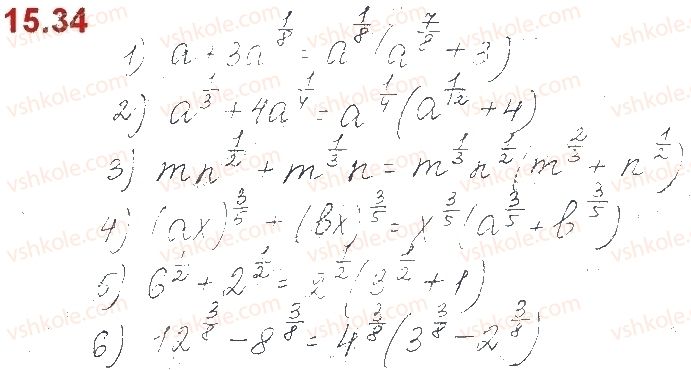 15.34
1) a + 3a^{1/8} = a^{1/8}(a^{7/8} + 3)
2) a^{1/3} + 4a^{1/4} = a^{1/4}(a^{1/12} + 4)
3) mn^{1/2} + m^{1/3}n = m^{1/3}n^{1/2}(m^{2/3} + n^{1/2})
4) (ax)^{3/5} + (bx)^{3/5} = x^{3/5}(a^{3/5} + b^{3/5})
5) 6^{1/2} + 2^{1/2} = 2^{1/2}(3^{1/2} + 1)
6) 12^{3/8} - 8^{3/8} = 4^{3/8}(3^{3/8} - 2^{3/8})
vshkole.com